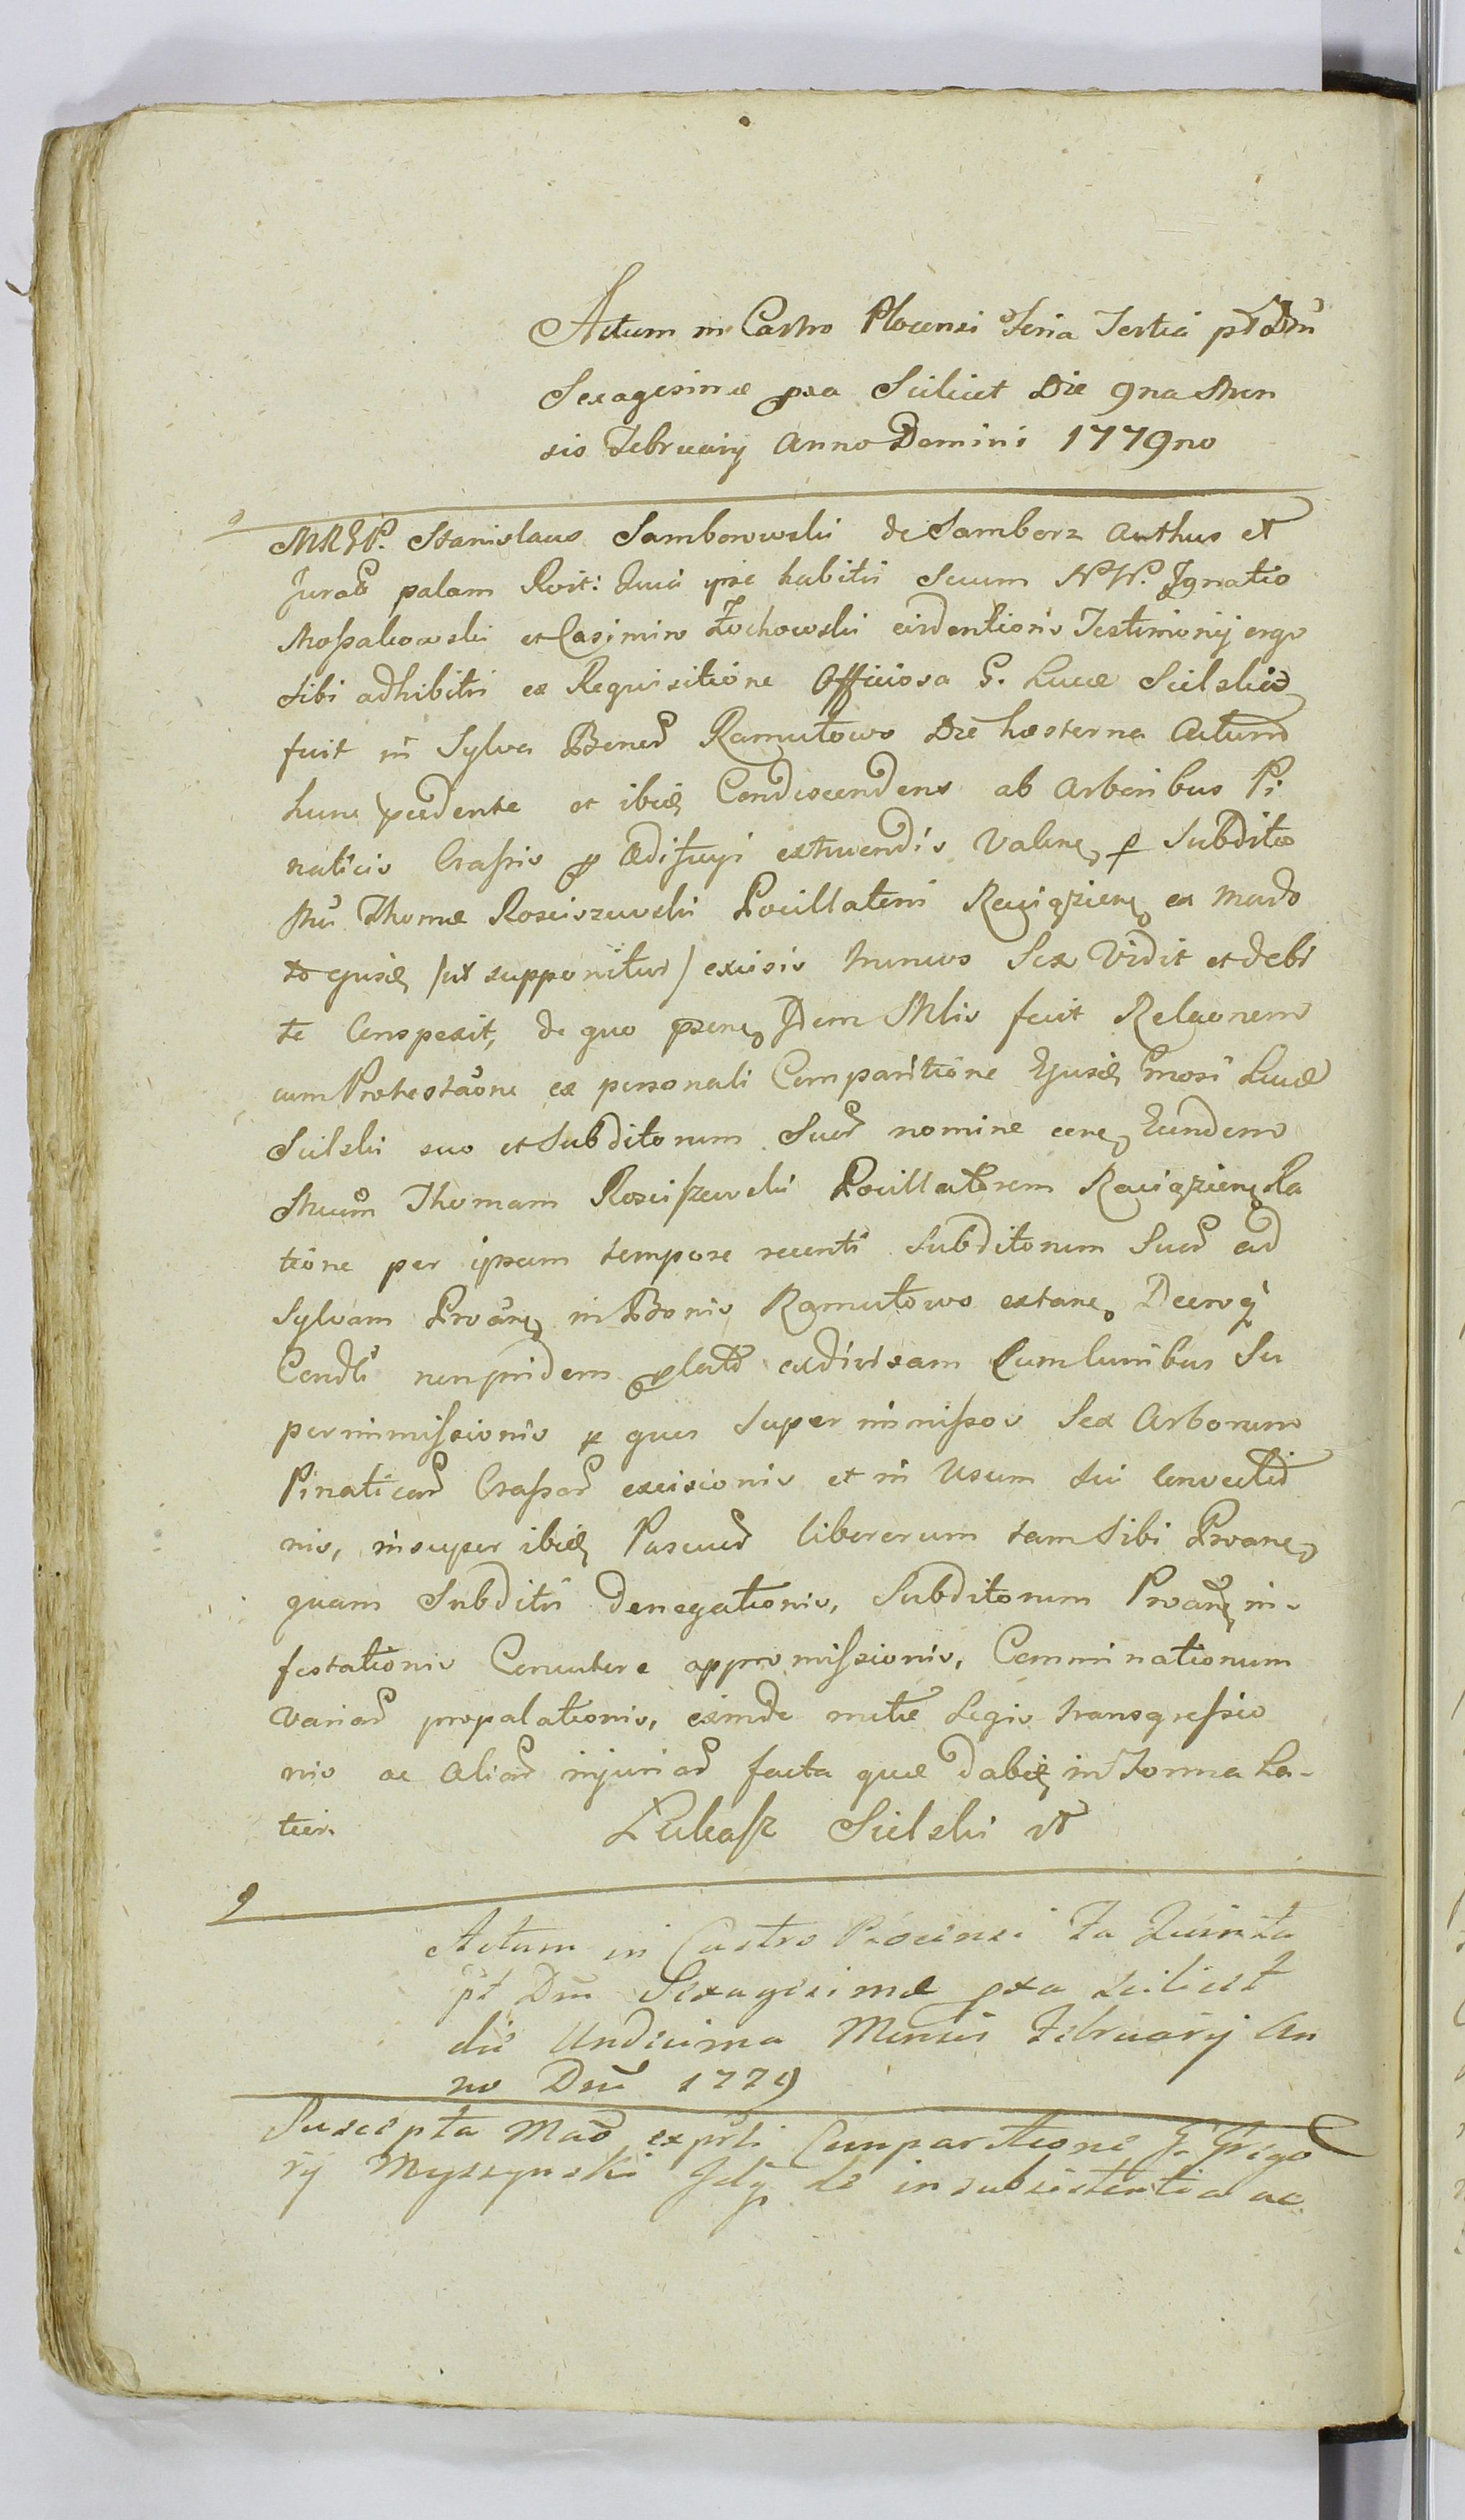 Actum in Castro Plocensi Feria Tertia pt Dnm̃
Sexagesimæ pxa Scilicet Die 9na Men
sis February Anno Domini 1779no
MRGP. Stanislaus Samborowski de Samborz Authus et
Jurat palam Rcit: Quia ipse habitis Secum NN. Ignatio
Moszakowski et Casimiro Żochowski evidentioris Testimonij ergo
sibi adhibitis ex Requisitione Officiosa G. Lucæ Sielski
fuit in Sylva Bonor Ramutowo Die hesterna Actum
hunc præcedente et ibid Condescendens ab Arboribus Pi
naticis Crassis p Ædificys extruendis Valen, p Subditos
Mci Thomæ Rosciszewski Pocillatoris Racigzien, ex Mand
to ejusd /ut supponitur/ excisis truncos Sex Vidit et debi
te Conspexit, de quo præsen, Idem Mlis fecit Relaonem
cum Protestaone ex personali Comparitione Ejusd Gnosi Lucæ
Sielski suo et Subditorum Suor nomine con, Eundem
Mcum Thomam Rosciszewski Pocillatorem Racigzien, Ra
tione per ipsum tempore recenti Subditorum Suor ad
Sylvam Protan, in Bonis Ramutowo extan, Decroq
Condli non pridem plato exdivisam Cum luribus Su
perimmissionis p quos superimmissos Sex Arborum
Pinaticar Crassar excisionis et in Usum sui Conversio
nis, insuper ibid Pascuor liberorum tam sibi Protan,
quam Subditis denegationis, Subditorum Protan, in-
festationis Concutere appromissionis, Comminationum
variar propalationis, exinde mitæ Legis transgressio
nis ac aliar injuriar facta quæ dabit, in Forma La-
tior.
Łukasz Sielski mp
Actum in Castro Plocensi Fa Quinta
pt Dm̃ Sexagesimæ pxa scilicet
die Undecima Mensis February An
no Dni 1779
Suscepta Mad exprli Comparitione G. Grego
ry Myszynski Idq de insubsistentia ac